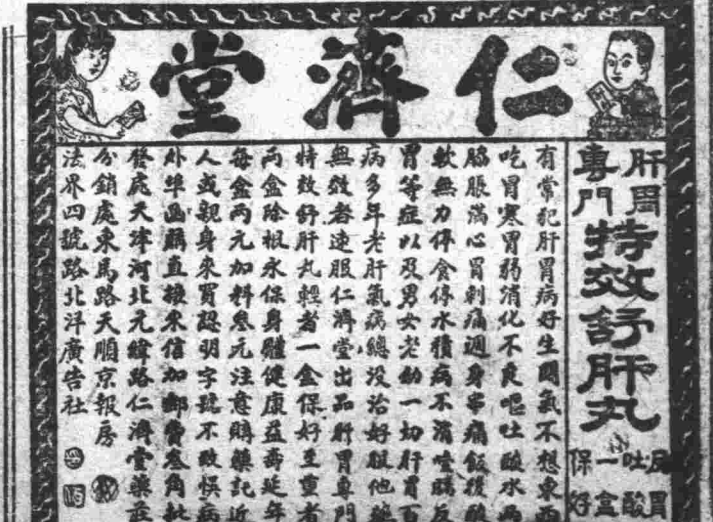 仁濟堂
肝胃專門
特效舒肝丸
吐酸
一盒
保好
有常犯肝胃病好生悶氣不想東西
吃胃寒胃弱消化不良嘔吐酸水兩
脇脹滿心胃刺痛週身串痛飯後酸
軟無力停食停水積病不消噎膈反
胃等症以及男女老幼一切肝胃百
病多年老肝氣病總沒治好服他藥
無效者速服仁濟堂出品肝胃專門
特效舒肝丸輕者一盒保好至重者
兩盒除根永保身體健康益壽延年
每盒兩元加料叁元注意購藥記近
人或親身來買認明字號不致悞病
外埠函購直接來信加郵費叁角批
發處天津河北元緯路仁濟堂藥莊
分銷處東馬路天順京報房
法界四號路北洋廣告社